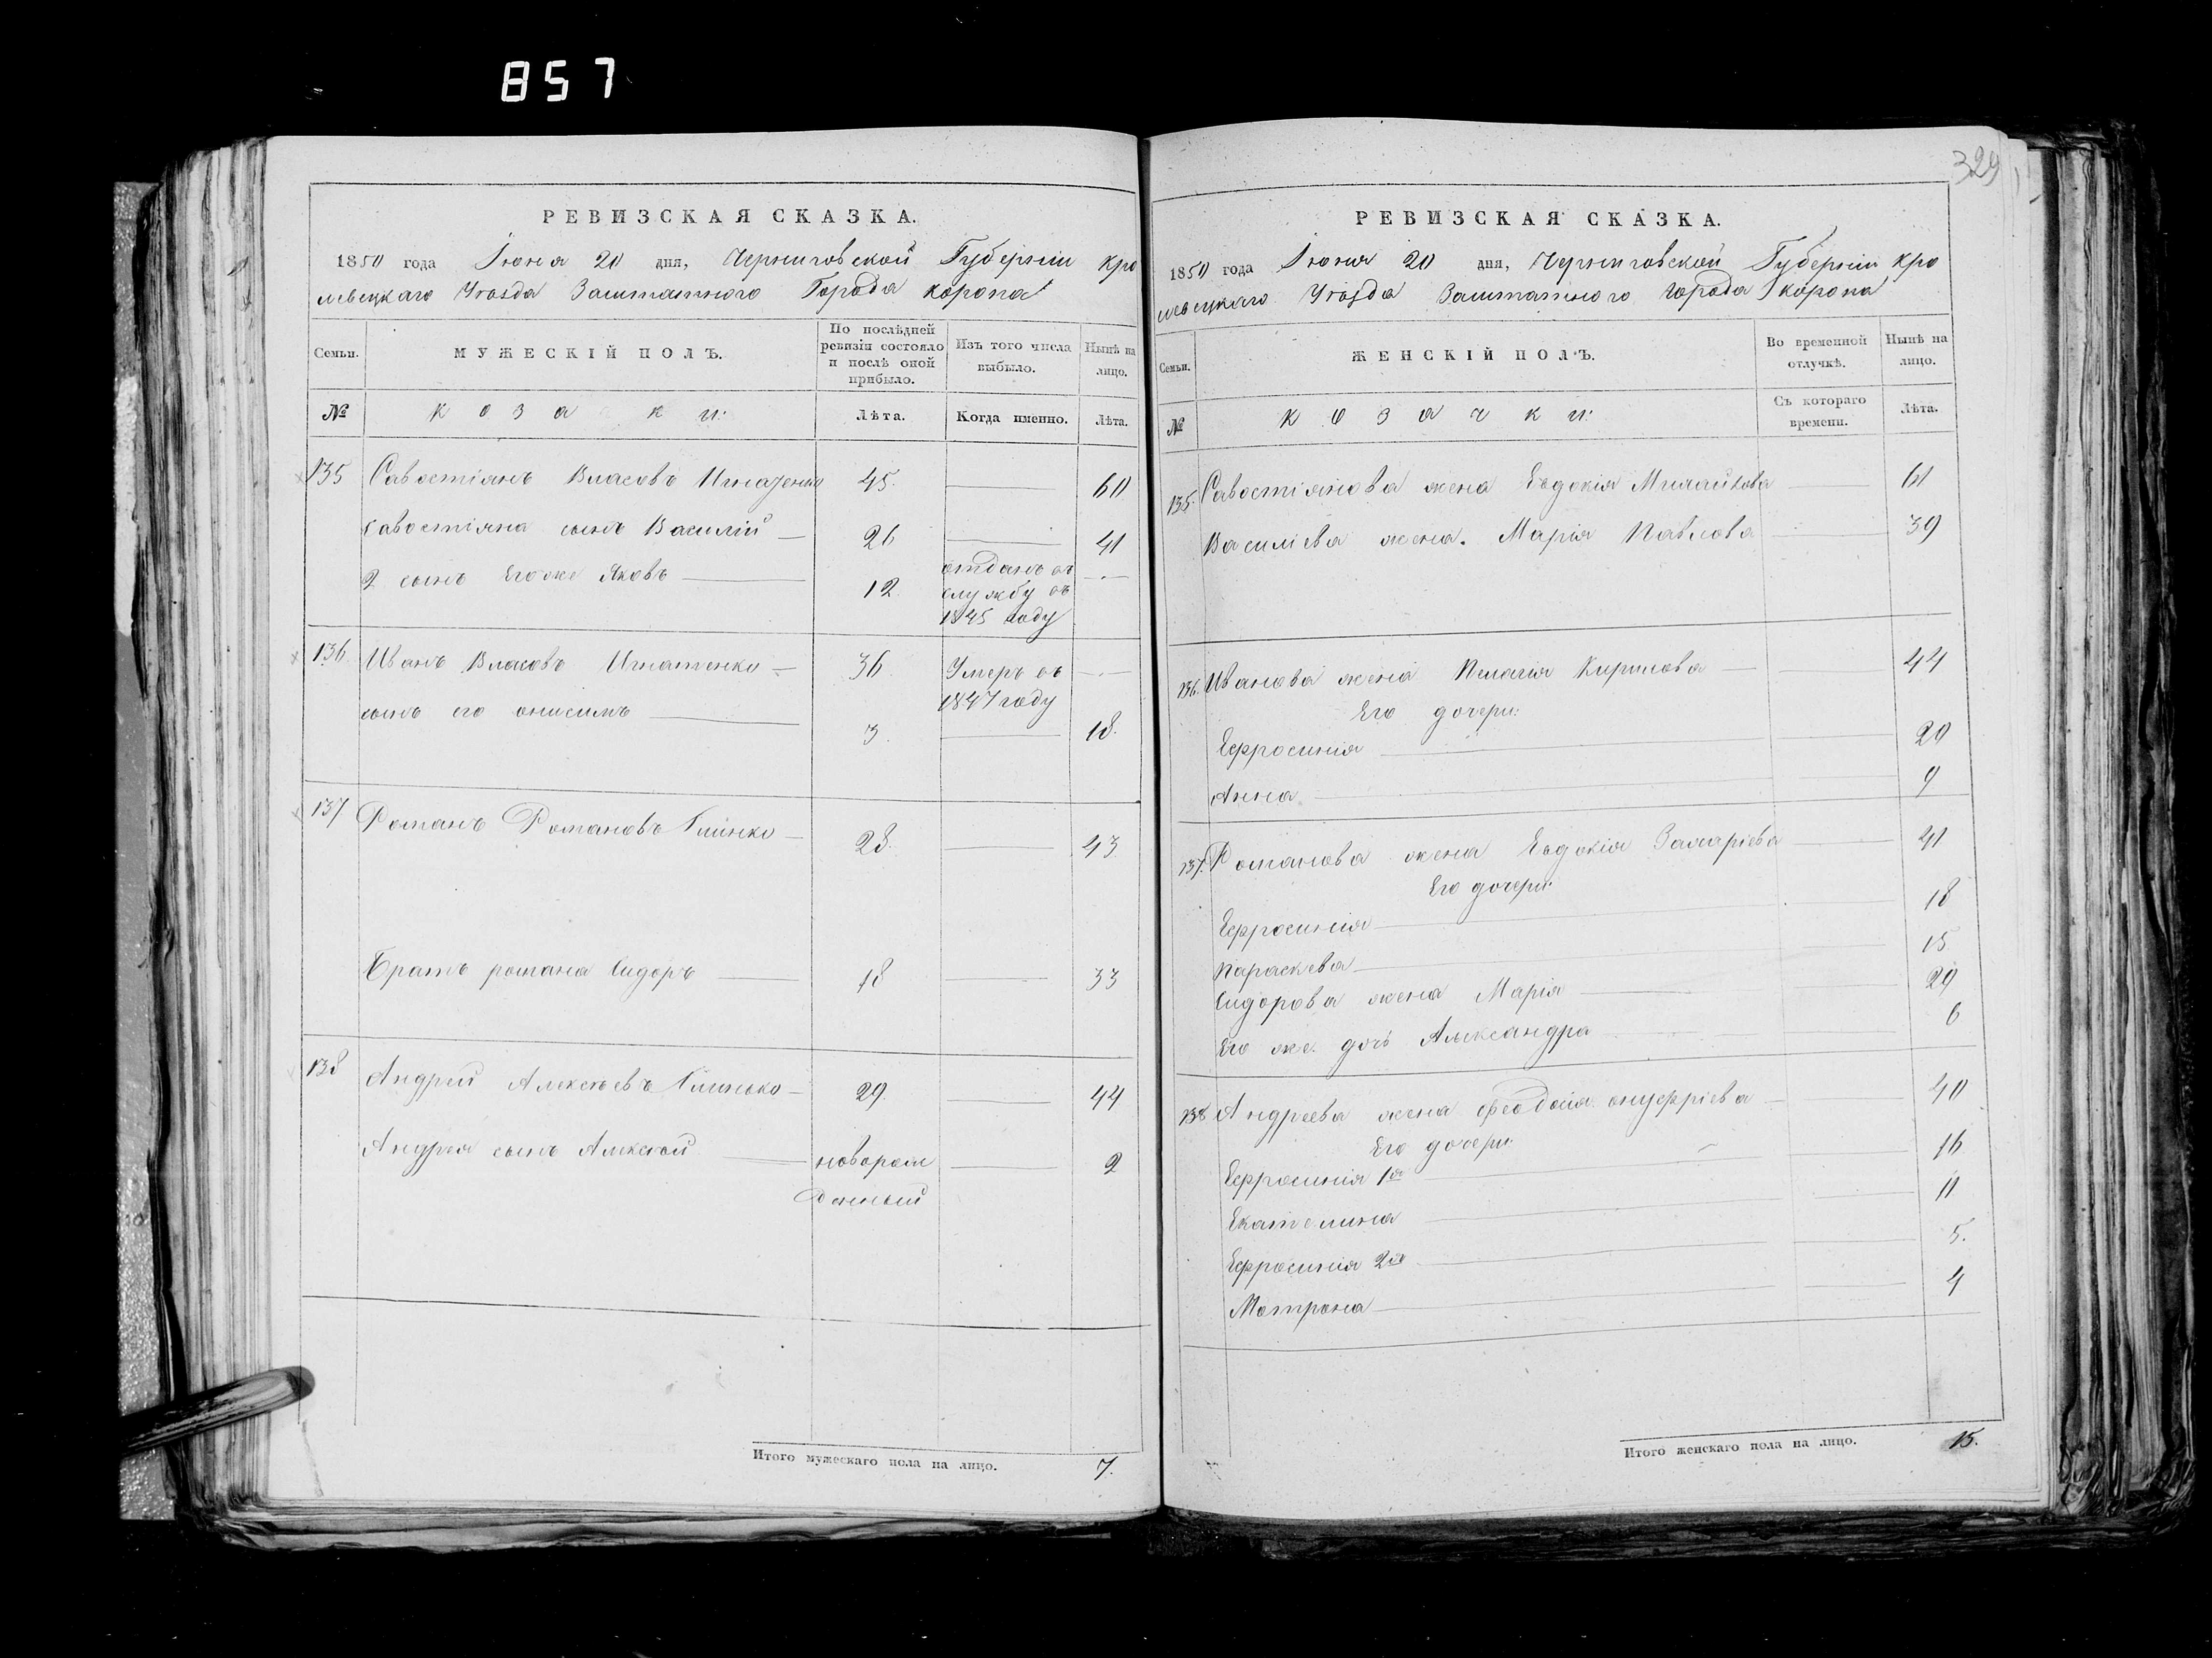 857
329
РЕВИЗСКАЯ СКАЗКА.
1850 года Іюня 20 дня, Черниговской Губерніи Кро
левецкаго Уѣзда Заштатного Города Коропа
Семьи.
МУЖЕСКІЙ ПОЛЪ.
По послѣдней ревизіи состояло и послѣ оной прибыло.
Изъ того числа выбыло.
Нынѣ на лицо.
№
козаки:
Лѣта.
Когда именно.
Лѣта.
135 Савостіянъ Власовъ Игнатенко 45. 60
Савостіяна сынъ Василій 26 41
2 сынъ Егоже Яковъ 12. отданъ въ
службу въ
1845 году
136 Иванъ Власовъ Игнатенко 36 Умеръ въ
1847 году
сынъ его Онисимъ 3. 18.
137 Романъ Романовъ 28. 43
Братъ романа Сидоръ 18 33
138 Андрей Алексѣевъ 29. 44
Андрея сынъ Алексѣй новорож 2
денный
Итого мужескаго пола на лицо. 7.
РЕВИЗСКАЯ СКАЗКА.
1850 года Іюня 20 дня, Черниговской Губерніи Кро
левецкаго Уѣзда Заштатного Города Коропа
Семьи.
ЖЕНСКІЙ ПОЛЪ.
Во временной отлучкѣ.
Нынѣ на лицо.
№
козачки:
Съ котораго времени.
Лѣта.
135. Савостіянова жена Евдокія 61
Василіева жена. Марія Павлова 39
136. Иванова жена Пелагія Кирилова 44
Его дочери:
Ефросинія 20
Анна 9
137. Романова жена Евдокія 41
Его дочери:
Ефросинія 18
Параскева 15
Сидорова жена Марія 29
Его же дочь Александра 6
138 Андреева жена Феодосія онуфріева 40
Его дочери:
Ефросинія 1я 16
Екатерина 11
Ефросинія 2я 5.
Мотрона 4
Итого женскаго пола на лицо. 15.